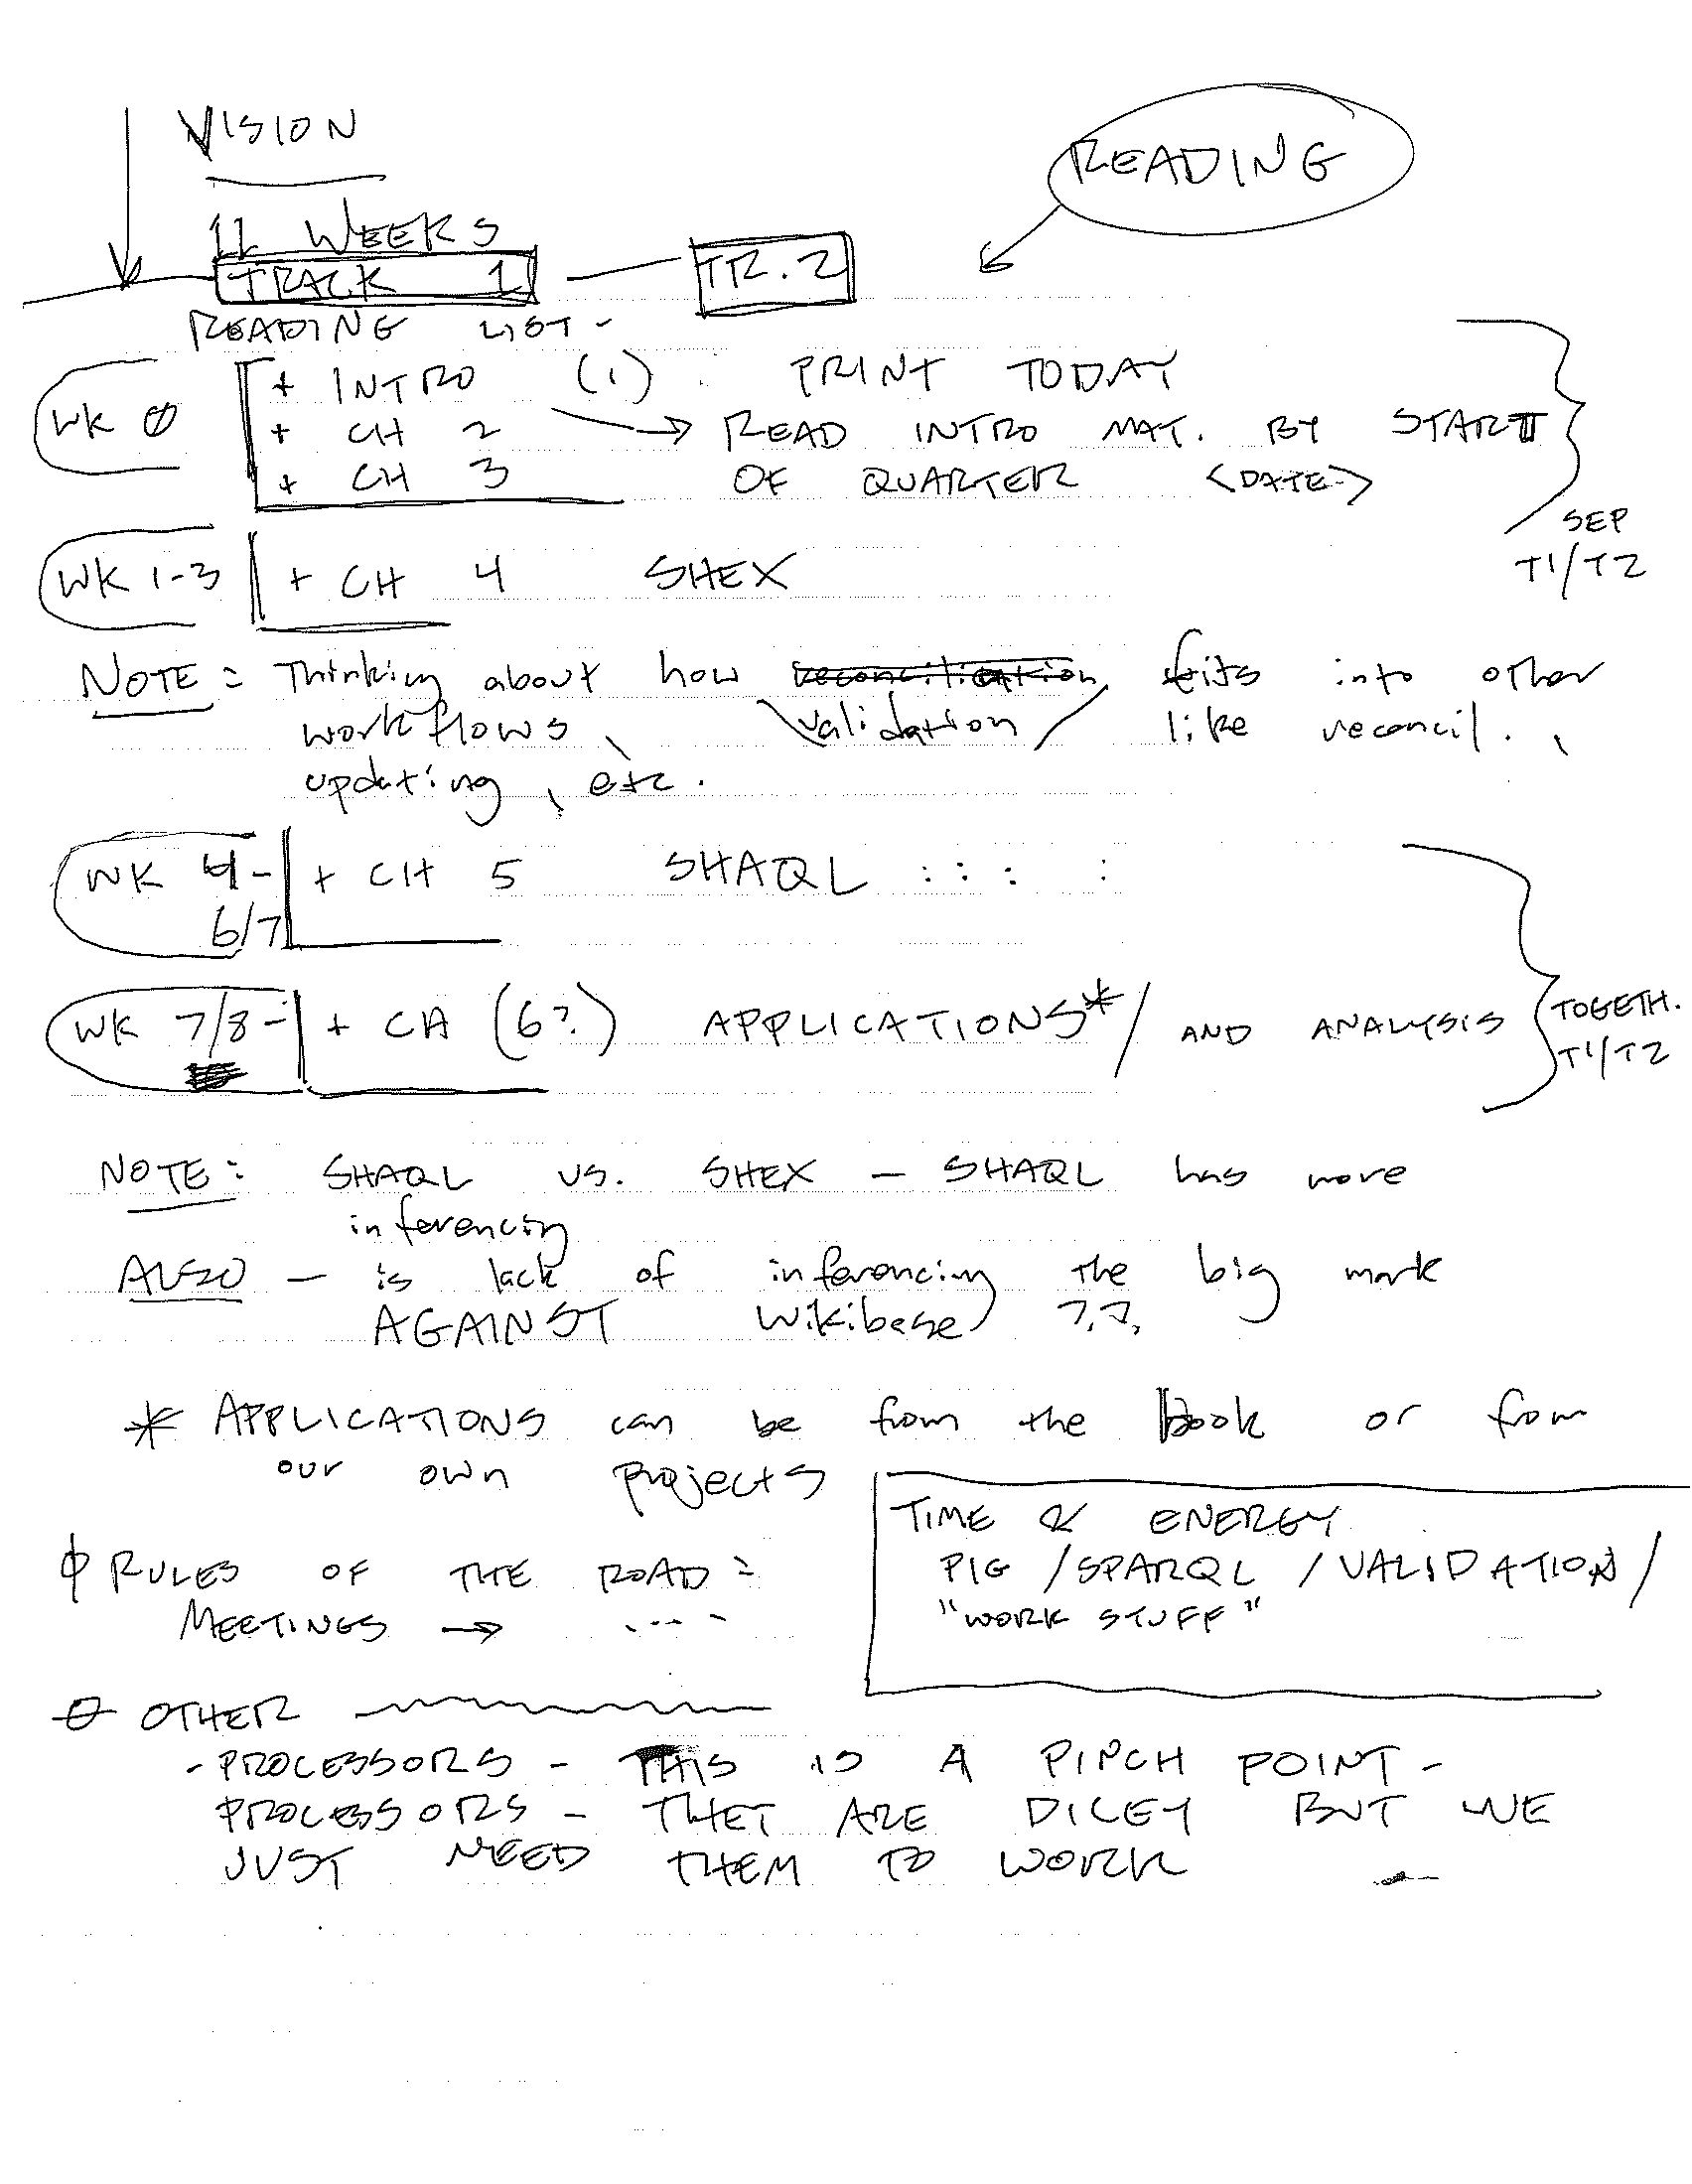 VISION
READING
11 WEEKS
TRACK 1 — TR. 2
READING LIST -
WK 0
+ INTRO (1) PRINT TODAY
+ CH 2 → READ INTRO MAT. BY START
+ CH 3 OF QUARTER <DATE>
SEP
T1/T2
WK 1-3 + CH 4 SHEX
NOTE: Thinking about how reconcilication fits into other
workflows, validation like reconcil.,
updating, etc.
WK 4- + CH 5 SHAQL : : : :
6/7
WK 7/8- + CH (6?) APPLICATIONS* / AND ANALYSIS
TOGETH.
T1/T2
NOTE: SHAQL VS. SHEX — SHAQL has more
inferencing
ALSO — is lack of inferencing the big mark
AGAINST Wikibase ??
* APPLICATIONS can be from the book or from
our own projects
TIME & ENERGY
PIG / SPARQL / VALIDATION /
"WORK STUFF"
RULES OF THE ROAD:
MEETINGS → ....
OTHER
- PROCESSORS - THIS IS A PINCH POINT -
PROCESSORS - THEY ARE DICEY BUT WE
JUST NEED THEM TO WORK